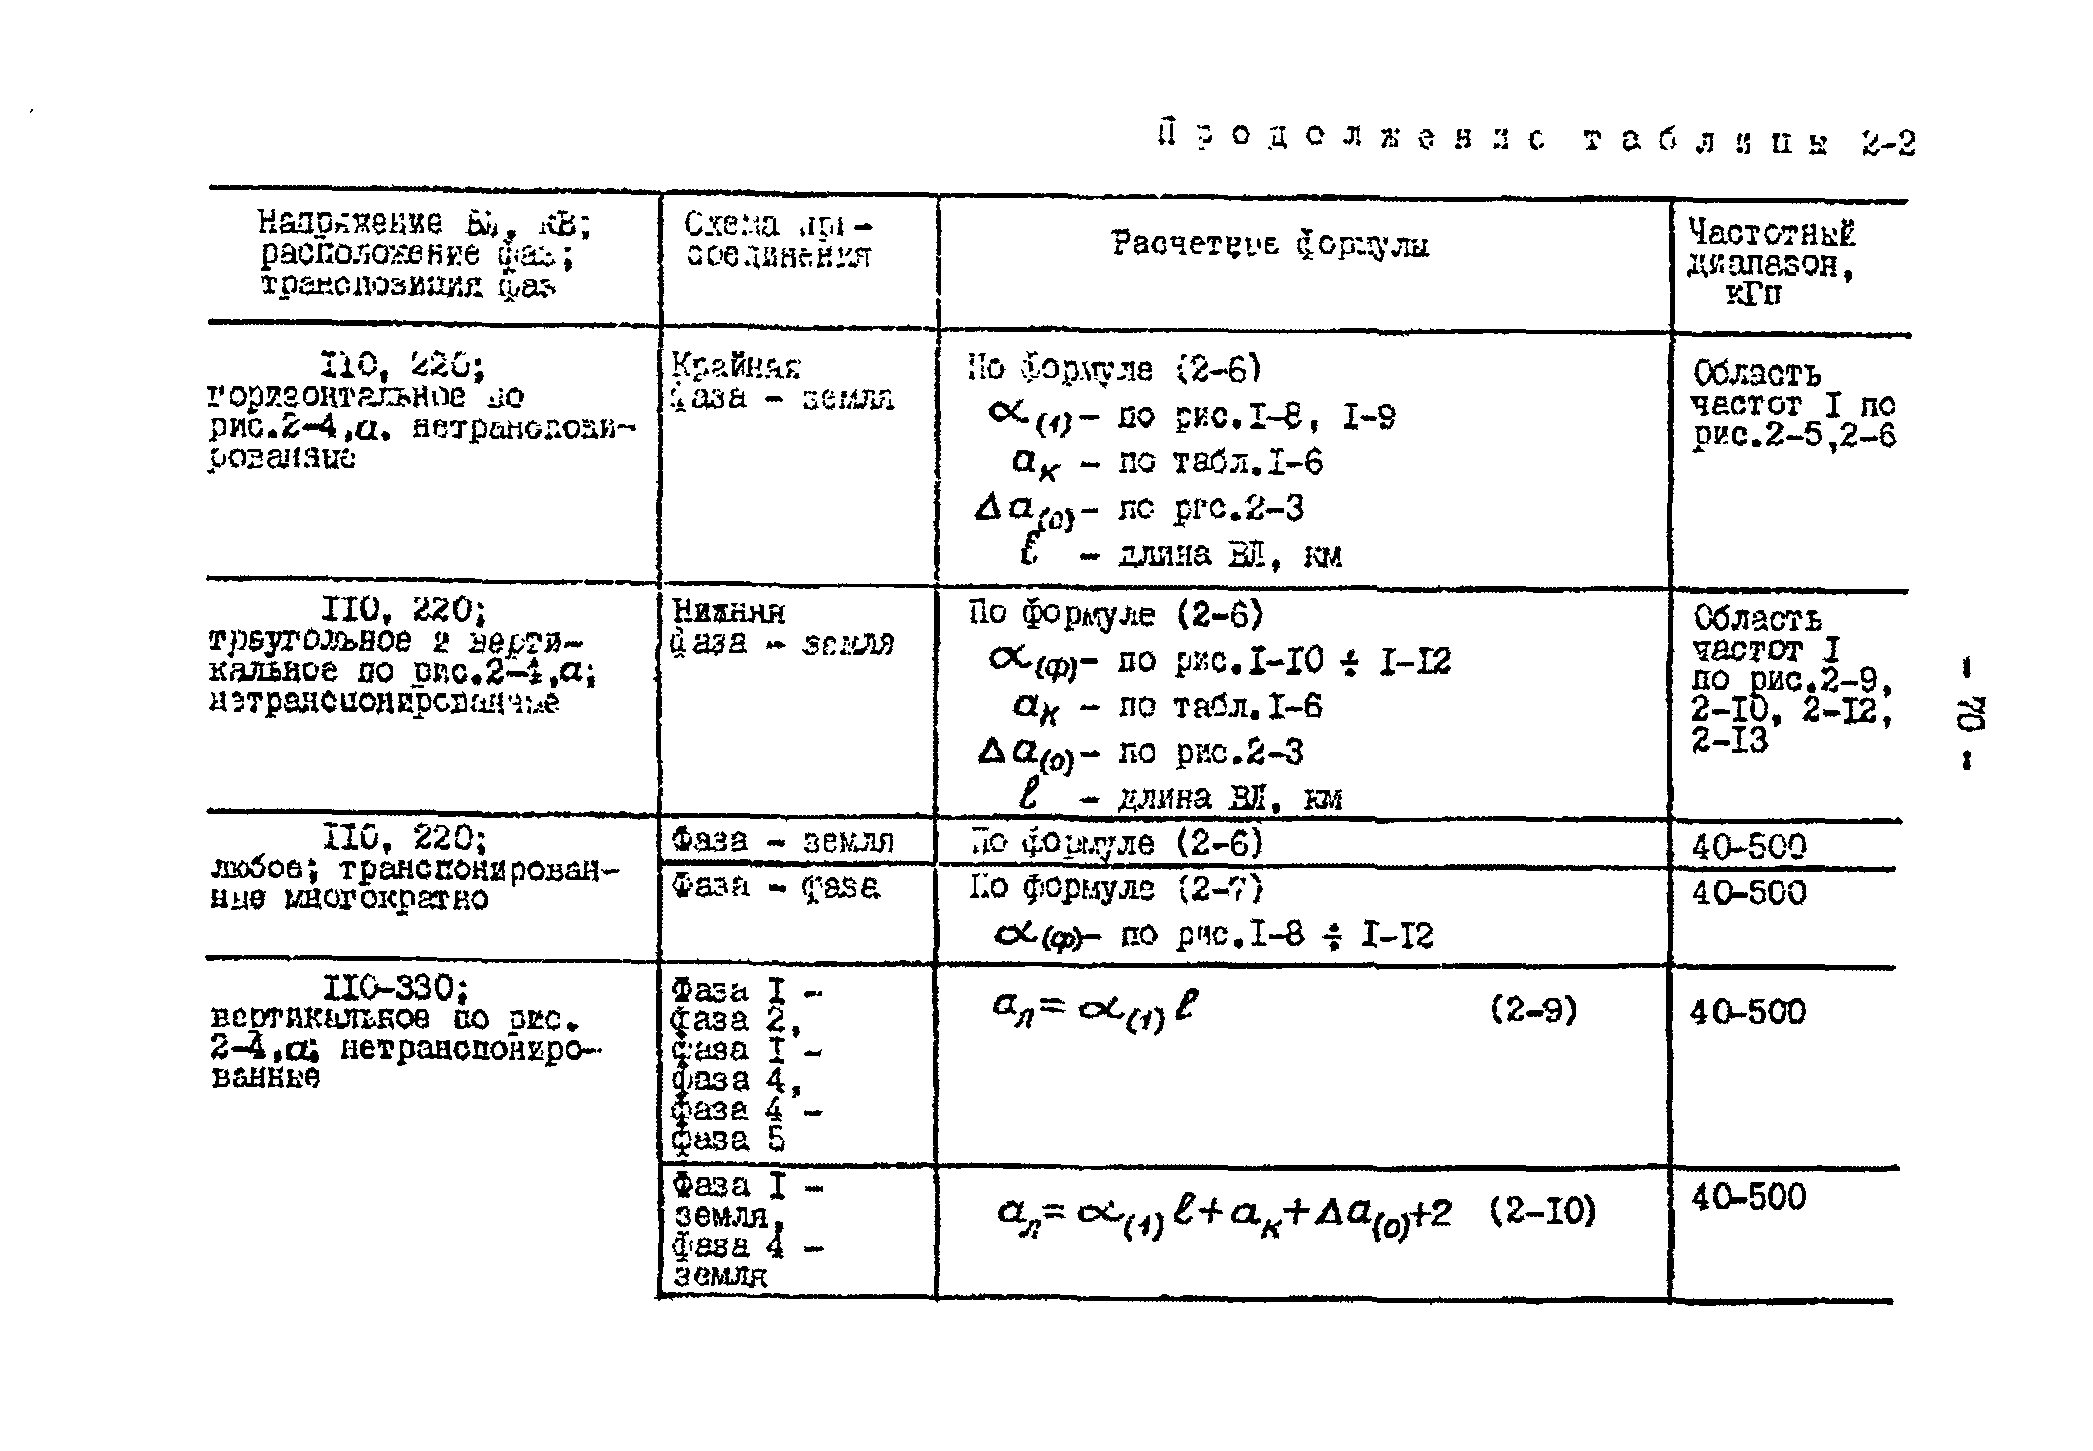 Продолжение таблицы 2-2
Напряжение ВЛ, кВ;
расположение фаз;
транспозиция фаз
Схема при-
соединения
Расчетные формулы
Частотный
диапазон,
кГц
110, 220;
горизонтальное по
рис.2-4,а, нетранспони-
рованные
Крайная
фаза - земля
По формуле (2-6)
α(1) - по рис.1-8, 1-9
aк - по табл.1-6
Δa(0) - по рис.2-3
ℓ - длина ВЛ, км
Область
частот I по
рис.2-5,2-6
110, 220;
треугольное и верти-
кальное по рис.2-4,а;
нетранспонированные
Нижняя
фаза - земля
По формуле (2-6)
α(ф) - по рис.1-10 ÷ 1-12
aк - по табл.1-6
Δa(0) - по рис.2-3
ℓ - длина ВЛ, км
Область
частот I
по рис.2-9,
2-10, 2-12,
2-13
110, 220;
любое; транспонирован-
ные многократно
Фаза - земля
По формуле (2-6)
40-500
Фаза - фаза
По формуле (2-7)
α(ф) - по рис.1-8 ÷ 1-12
40-500
110-330;
вертикальное по рис.
2-4,а; нетранспониро-
ванные
Фаза 1 -
фаза 2,
фаза 1 -
фаза 4,
фаза 4 -
фаза 5
aл = α(1) ℓ (2-9)
40-500
Фаза 1 -
земля,
фаза 4 -
земля
aл = α(1) ℓ + aк + Δa(0) + 2 (2-10)
40-500
- 70 -